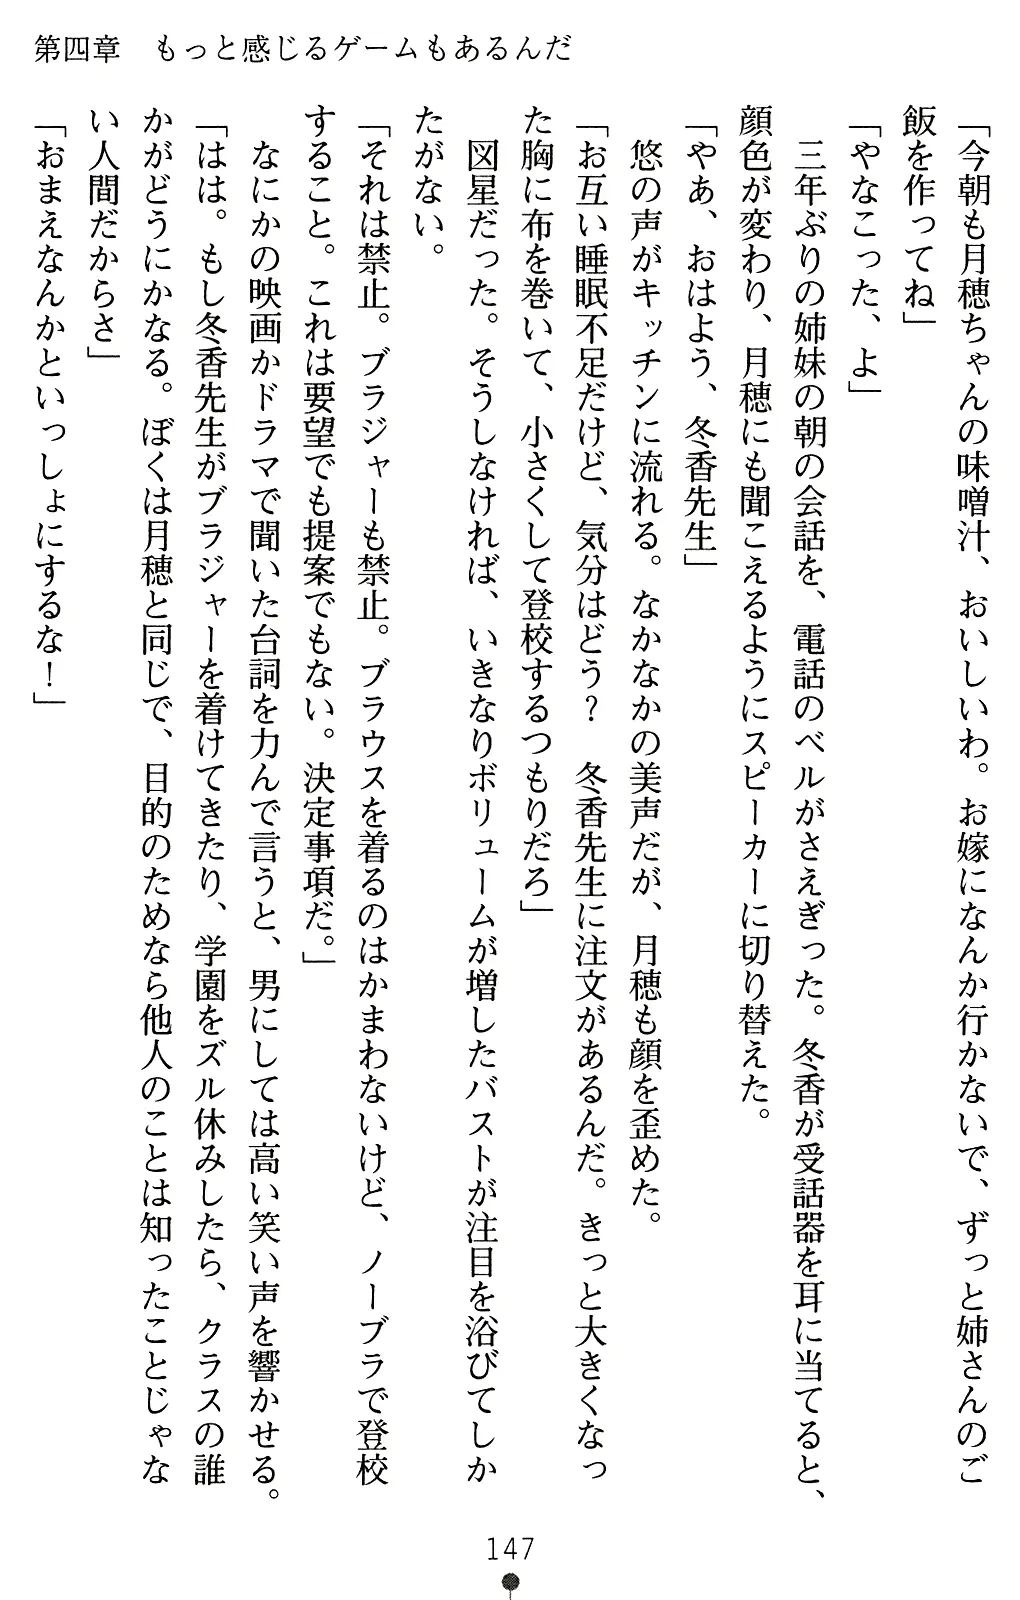 第四章　もっと感じるゲームもあるんだ
「今朝も月穂ちゃんの味噌汁、おいしいわ。お嫁になんか行かないで、ずっと姉さんのご
飯を作ってね」
「やなこった、よ」
　三年ぶりの姉妹の朝の会話を、電話のベルがさえぎった。冬香が受話器を耳に当てると、
顔色が変わり、月穂にも聞こえるようにスピーカーに切り替えた。
「やあ、おはよう、冬香先生」
　悠の声がキッチンに流れる。なかなかの美声だが、月穂も顔を歪めた。
「お互い睡眠不足だけど、気分はどう？　冬香先生に注文があるんだ。きっと大きくなっ
た胸に布を巻いて、小さくして登校するつもりだろ」
　図星だった。そうしなければ、いきなりボリュームが増したバストが注目を浴びてしか
たがない。
「それは禁止。ブラジャーも禁止。ブラウスを着るのはかまわないけど、ノーブラで登校
すること。これは要望でも提案でもない。決定事項だ。」
　なにかの映画かドラマで聞いた台詞を力んで言うと、男にしては高い笑い声を響かせる。
「はは。もし冬香先生がブラジャーを着けてきたり、学園をズル休みしたら、クラスの誰
かがどうにかなる。ぼくは月穂と同じで、目的のためなら他人のことは知ったことじゃな
い人間だからさ」
「おまえなんかといっしょにするな！」
147